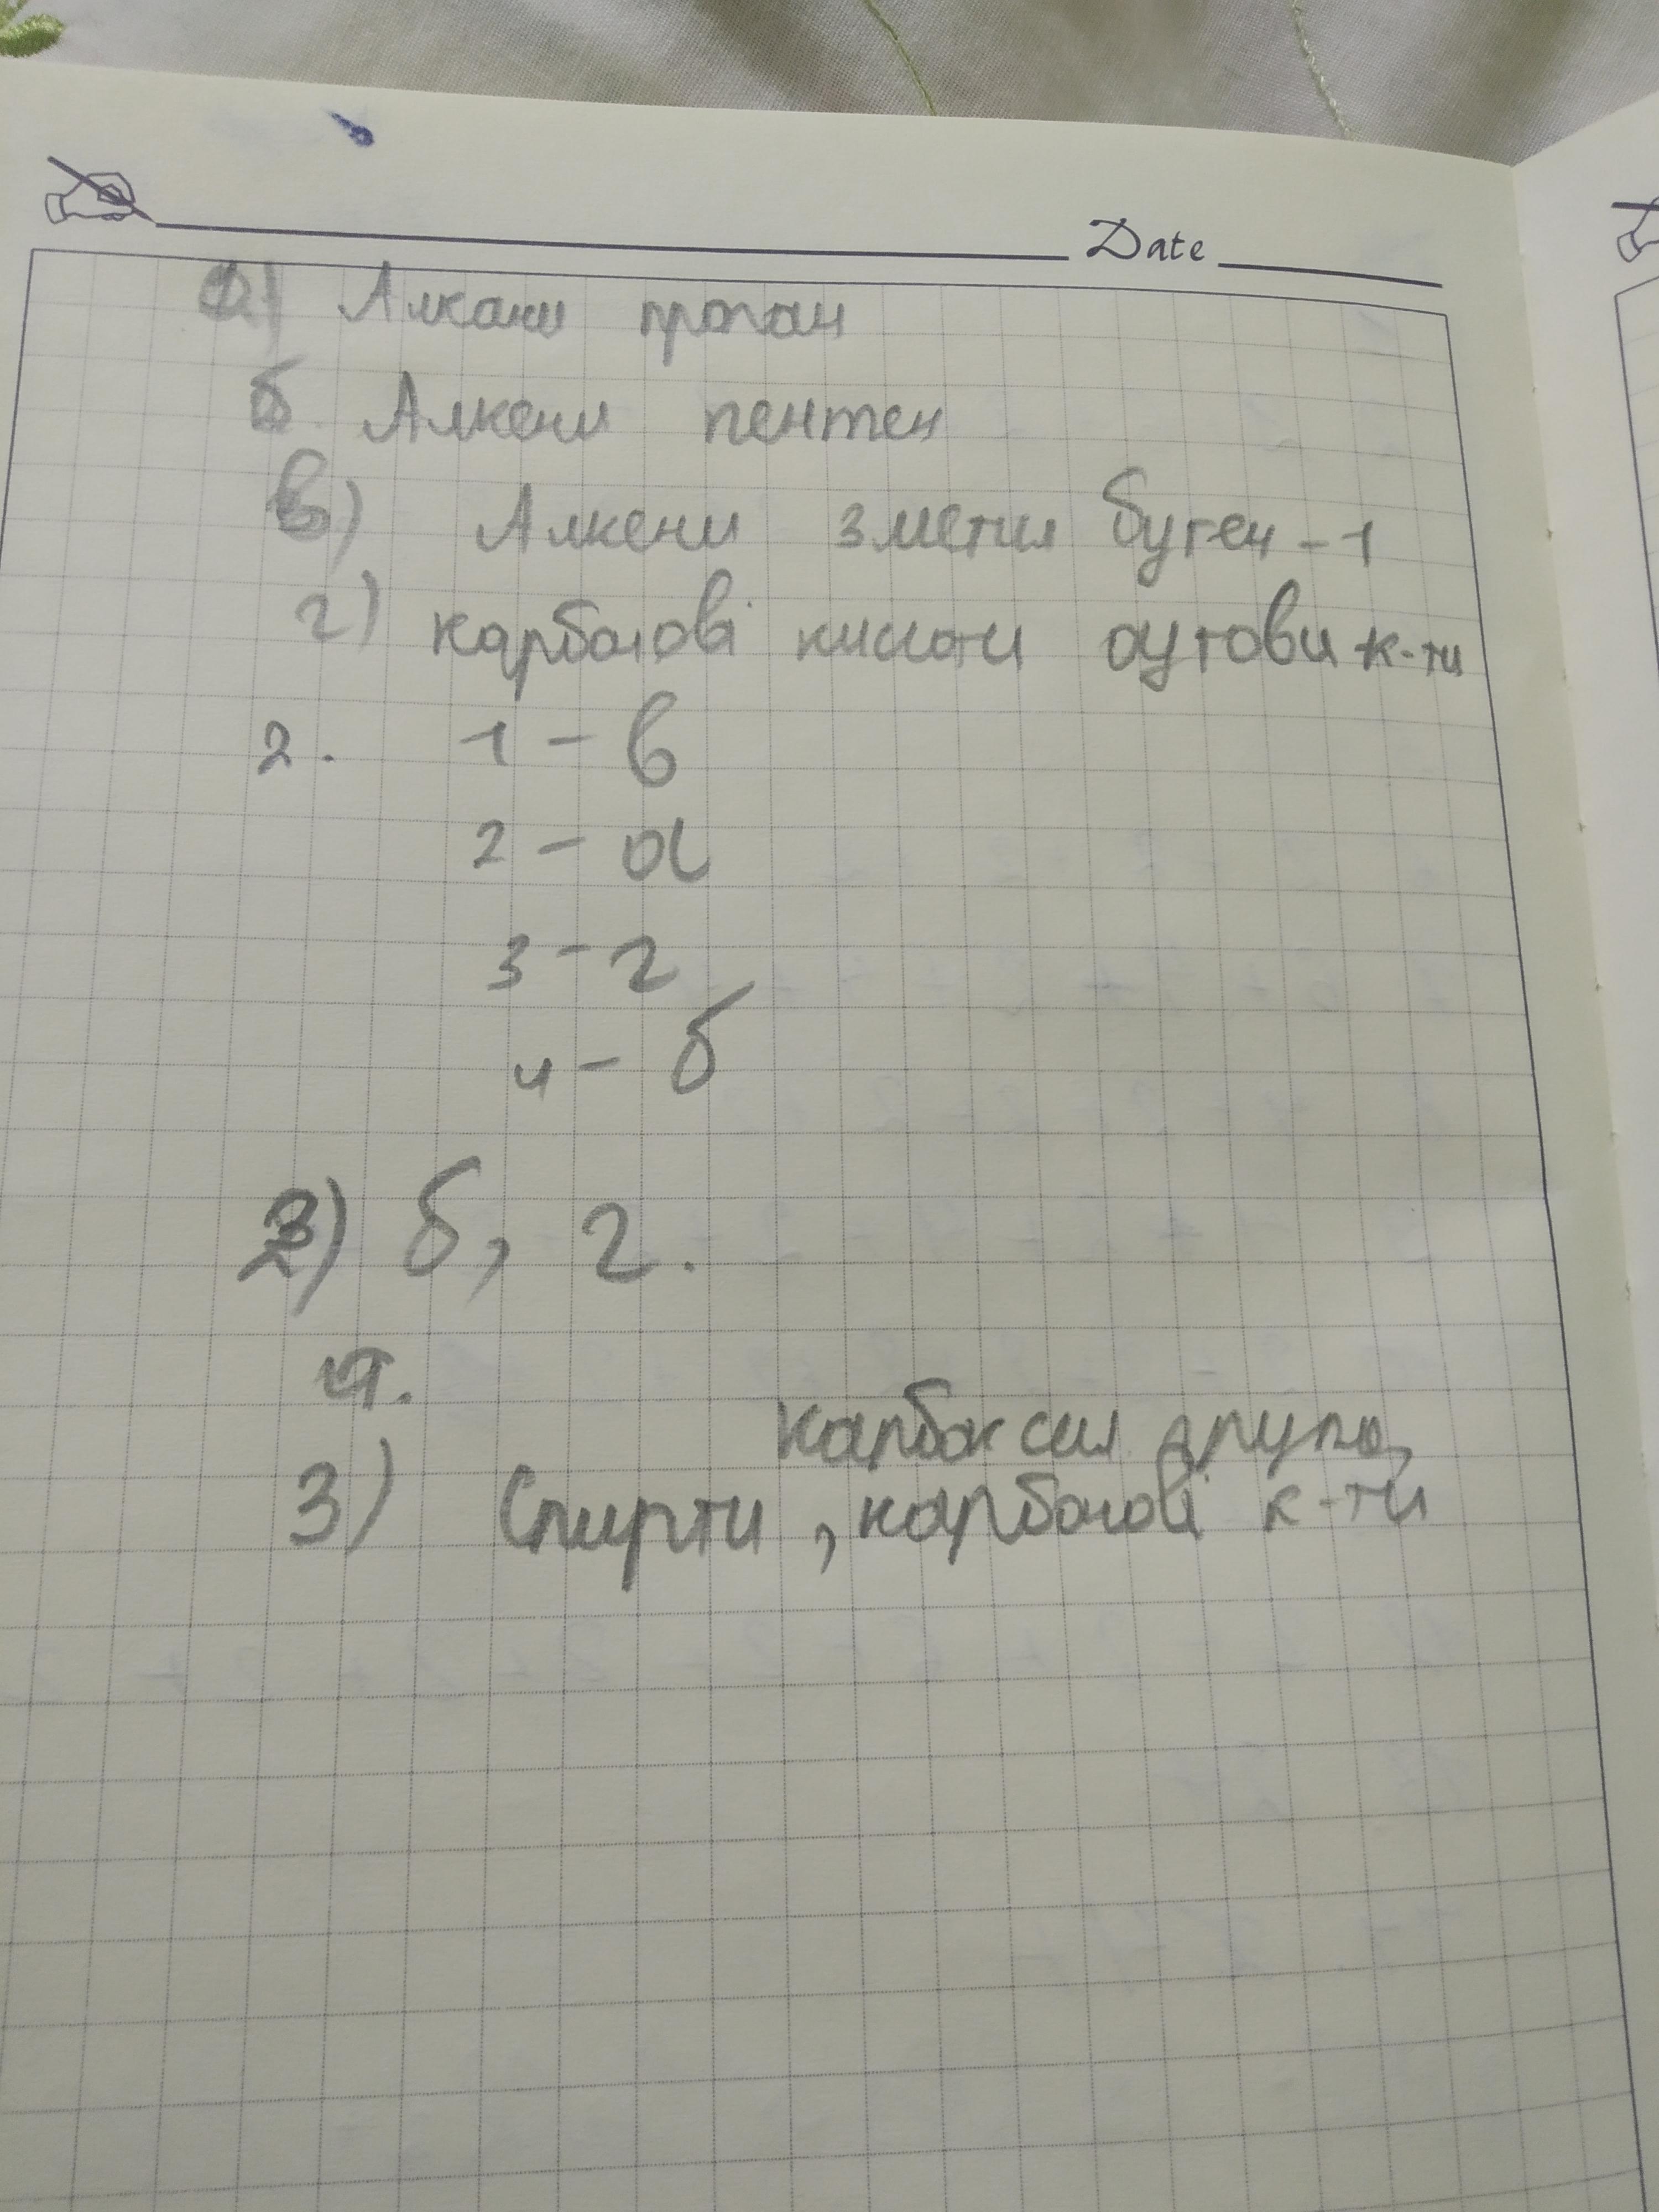 Date
а) Алкани пропан
б Алкени пентен
в) Алкени 3 метил бутен - 1
г) карбонові кислоти оцтови к-ти
2. 1 - в
2 - а
3 - г
4 - б
б, г.
4.
карбоксил група,
3) Спирти , карбонові к-ти